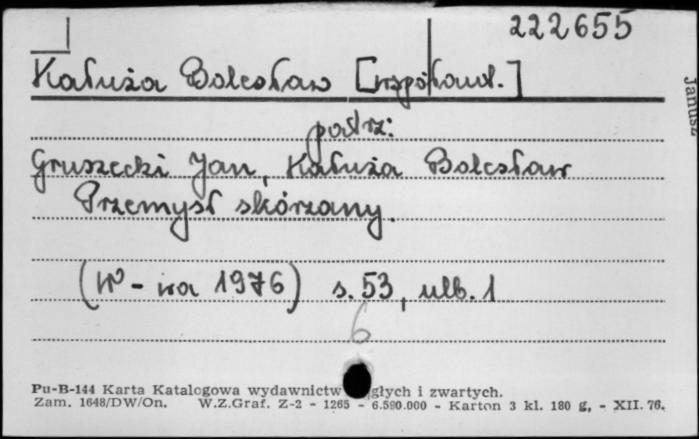 222655
Kałuża Bolesław [współaut.]
patrz:
Gruszecki Jan, Kałuża Bolesław
Przemysł skórzany.
(W-wa 1976) s. 53, nlb. 1
6
Pu-B-144 Karta Katalogowa wydawnictw głych i zwartych.
Zam. 1648/DW/On. W.Z.Graf. Z-2 - 1265 - 6.590.000 - Karton 3 kl. 180 g, - XII. 76.
Janusz